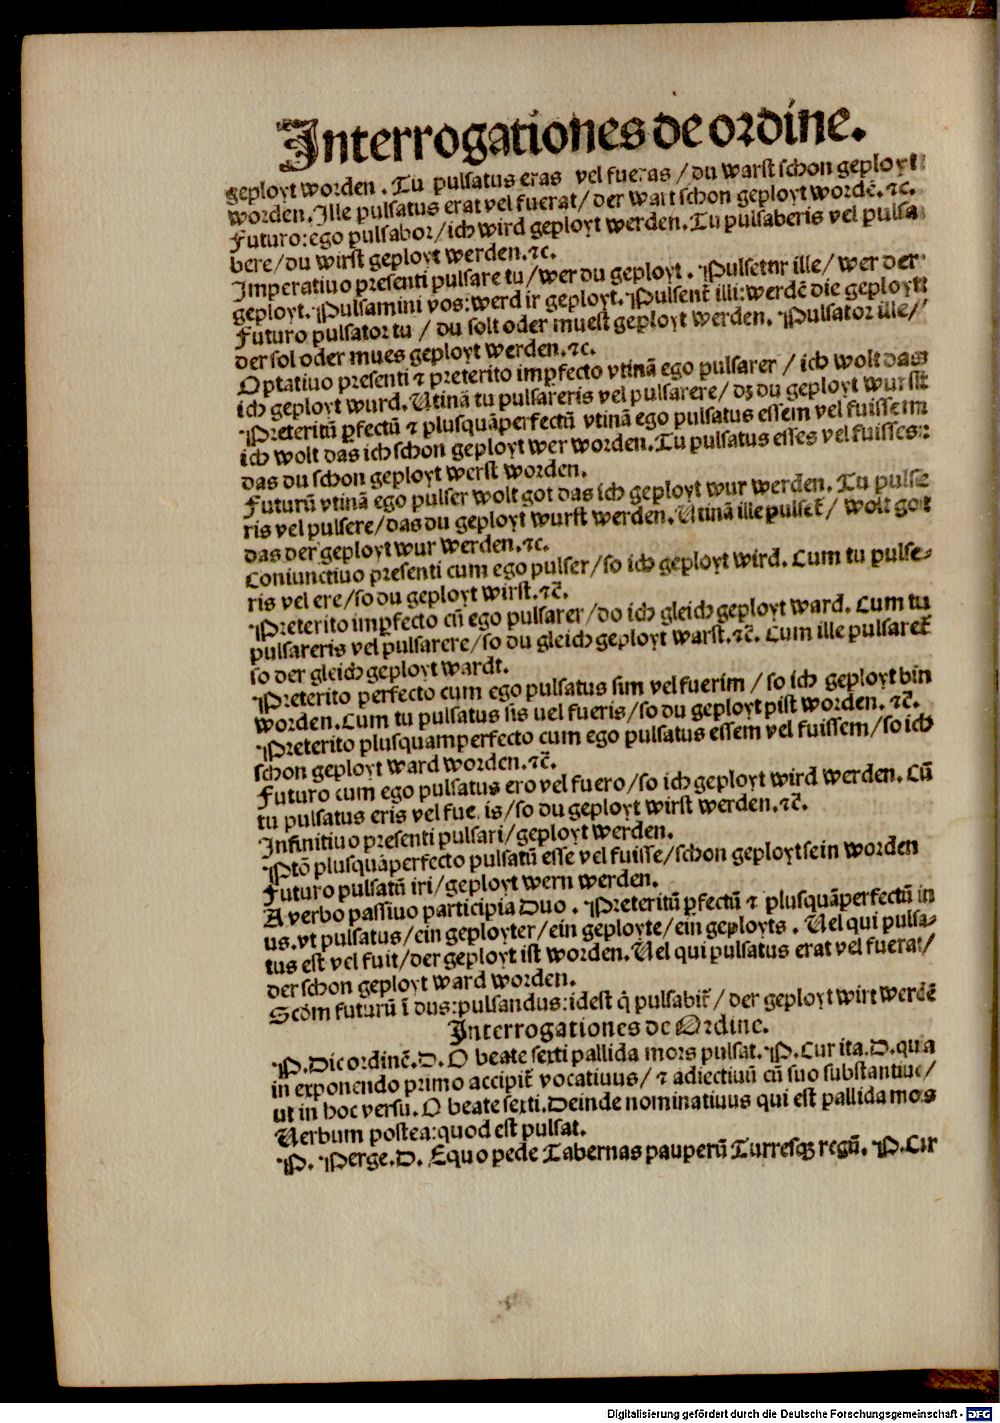 Interrogationes de ordine.
geployt worden. Tu pulsatus eras vel fueras / du warst schon geployt
worden. Ille pulsatus erat vel fuerat / der wart schon geployt wordẽ. ⁊c.
Futuro: ego pulsabor / ich wird geployt werden. Tu pulsaberis vel pulsa
bere / du wirst geployt werden. ⁊c.
Imperatiuo presenti pulsare tu / wer du geployt. Pulsetur ille / wer der
geployt. Pulsamini vos: werd ir geployt. Pulsent̃ illi: werdẽ die geployt
Futuro pulsator tu / du solt oder muest geployt werden. Pulsator ille /
der sol oder mues geployt werden. ⁊c.
Optatiuo presenti ⁊ preterito imꝑfecto vtinã ego pulsarer / ich wolt das
ich geployt wurd. Utinã tu pulsareris vel pulsarere / dʒ du geployt wurst
Preteritũ ꝑfectũ ⁊ plusquãperfectũ vtinã ego pulsatus essem vel fuissem
ich wolt das ich schon geployt wer worden. Tu pulsatus esses vel fuisses:
das du schon geployt werst worden.
Futurũ vtinã ego pulser wolt got das ich geployt wur werden. Tu pulse
ris vel pulsere / das du geployt wurst werden. Utinã ille pulset̃ / wolt got
das der geployt wur werden. ⁊c.
Coniunctiuo presenti cum ego pulser / so ich geployt wird. Cum tu pulse-
ris vel ere / so du geployt wirst. ⁊c̃.
Preterito imꝑfecto cũ ego pulsarer / do ich gleich geployt ward. Cum tu
pulsareris vel pulsarere / so du gleich geployt warst. ⁊c̃. Cum ille pulsaret̃
so der gleich geployt wardt.
Preterito perfecto cum ego pulsatus sim vel fuerim / so ich geployt bin
worden. Cum tu pulsatus sis uel fueris / so du geployt pist worden. ⁊c̃.
Preterito plusquamperfecto cum ego pulsatus essem vel fuissem / so ich
schon geployt ward worden. ⁊c̃.
Futuro cum ego pulsatus ero vel fuero / so ich geployt wird werden. Cũ
tu pulsatus eris vel fue is / so du geployt wirst werden. ⁊c̃.
Infinitiuo presenti pulsari / geployt werden.
Ptõ plusquãperfecto pulsatũ esse vel fuisse / schon geployt sein worden
Futuro pulsatũ iri / geployt wern werden.
A verbo passiuo participia Duo. Preteritũ ꝑfectũ ⁊ plusquãperfectũ in
us. vt pulsatus / ein geployter / ein geployte / ein geployts. Uel qui pulsa-
tus est vel fuit / der geployt ist worden. Uel qui pulsatus erat vel fuerat /
der schon geployt ward worden.
Scõm futurũ ĩ dus: pulsandus: idest q̇ pulsabit̃ / der geployt wirt werdẽ
Interrogationes de Ordine.
P. Dic ordinẽ. D. O beate sexti pallida mors pulsat. P. Cur ita. D. quia
in exponendo primo accipit̃ vocatiuus / ⁊ adiectiuũ cũ suo substantiuo /
ut in hoc versu. O beate sexti. Deinde nominatiuus qui est pallida mors
Uerbum postea: quod est pulsat.
P. Perge. D. Equo pede Tabernas pauperũ Turresqꝫ regũ. P. Cur
Digitalisierung gefördert durch die Deutsche Forschungsgemeinschaft - DFG